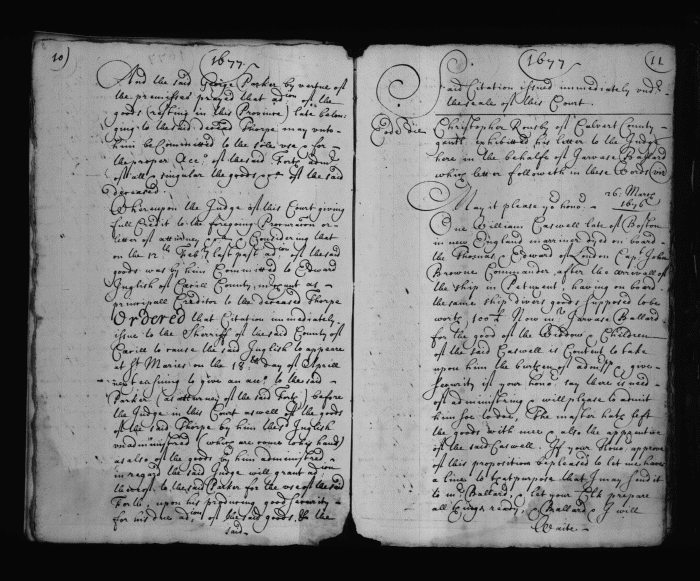 10)
1677.
And the said George Parker by vertue of
the premisses prayed that adcon of the
goods (resting in this Province) late belon-
ging to the said deced Thorpe may unto
him be Committed to the sole use & for
the proper Acct of the said Forth admr
of all & singular the goods &c of the said
deceased.
Whereupon the Judge of this Court giving
full Credit to the foregoing Procuracon or
letter of attorney &c & Considering that
on the 12th Feb last past adcon of the said
goods was by him Committed to Edward
Inglish of Cecill County, as
principall Creditor to the deceased Thorpe
Ordered that Citation immediately
issue to the Sherriff of the said County of
Cecill to cause the said Inglish to appeare
at St Maries on the 18th day of Aprill
next ensuing to give an acct to the said
Parker (as attorney of the said Forth) before
the Judge in this Court aswell of the goods
of the said Thorpe by him the said Inglish
unadministred (which are come to his hand)
as also of the goods by him administred
in regard the said Judge will grant adcon
thereof to the said Parker for the use of the said
Forth, upon his producing good security
for his due adcon of the said goods. & the
said
1677
11
Said Citation issued immediately under
the seale of this Court.
Christopher Rousby of Calvert County
gentl exhibited his letter to the Judge
here in the behalfe of Jarvase Ballard
which letter followeth in these words viz
26. March
1676
May it please yo hono,
One William Caswell late of Boston
in new England marriner dyed on board
the Thomas & Edward of London Capt John
Browne Commander, after the arrivall of
the ship in Patuxent, having on board
the same ship divers goods supposed to be
worth 100 ll Now mr Jarvais Ballard
for the good of the Widdow & Children
of the said Caswell is Content to take
upon him the burthen of admstr & give
security if your honor say there is need
of administring & will please to admit
him soe to doe, The master hath left
the goods with mee & also the apprentice
of the said Caswell. If your Hono. approve
of this proposition be pleased to let me have
a line to that purpose that I may send it
to mr Ballard, & let your Clk prepare
all things ready, & Ballard & I will
waite